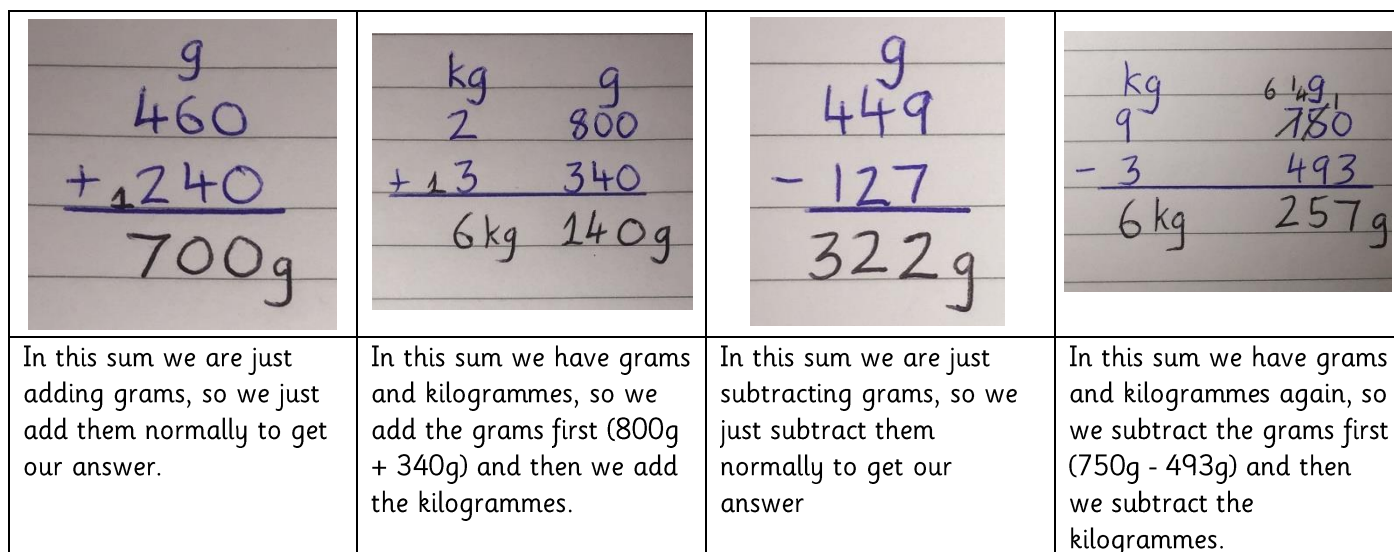 g
460
+ 1 240
700g
kg g
2 800
+ 1 3 340
6kg 140g
g
449
- 127
322g
kg g
6 14 1
9 750
- 3 493
6kg 257g
In this sum we are just
adding grams, so we just
add them normally to get
our answer.
In this sum we have grams
and kilogrammes, so we
add the grams first (800g
+ 340g) and then we add
the kilogrammes.
In this sum we are just
subtracting grams, so we
just subtract them
normally to get our
answer
In this sum we have grams
and kilogrammes again, so
we subtract the grams first
(750g - 493g) and then
we subtract the
kilogrammes.